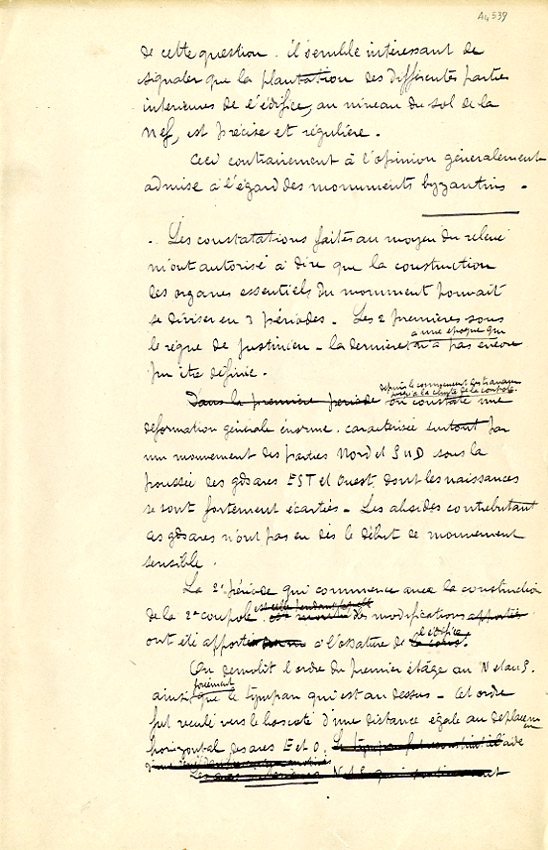 A4 539
de cette question. il semble intéressant de
signaler que la plantation des différentes parties
interieures de l'édifice, au niveau du sol de la
Nef, est précise et régulière.
Ceci contrairement à l'opinion généralement
admise à l'égard des monuments byzantins.
Les constatations faites au moyen du relevé
m'ont autorisé à dire que la construction
des organes essentiels du monument pouvait
se diviser en 3 périodes. Les 2 premières sous
le règne de Justinien - la dernière à une époque qui n'a pas encore
pu être définie.
Dans la première période depuis le commencement des travaux jusqu'à la chute de la coupole. on constate une
déformation générale énorme. caracterisée surtout par
un mouvement des parties Nord et SUD sous la
poussée des gds arcs EST et Ouest dont les naissances
se sont fortement écartées - Les absides contrebutant
ces gds arcs n'ont pas eu dès le début de mouvement
sensible.
La 2e période qui commence avec la construction
de la 2e coupole. des modifications apportées
ont été apportées à l'ossature de l'édifice.
On démolit l'ordre du premier étage au N et au S.
ainsi forcément que le tympan qui est au dessus - Cet ordre
fut reculé vers le bas coté d'une distance égale au deplacem
horizontal des arcs E et O. Le tympan fut construit à l'aide
Les arcs N et S qui